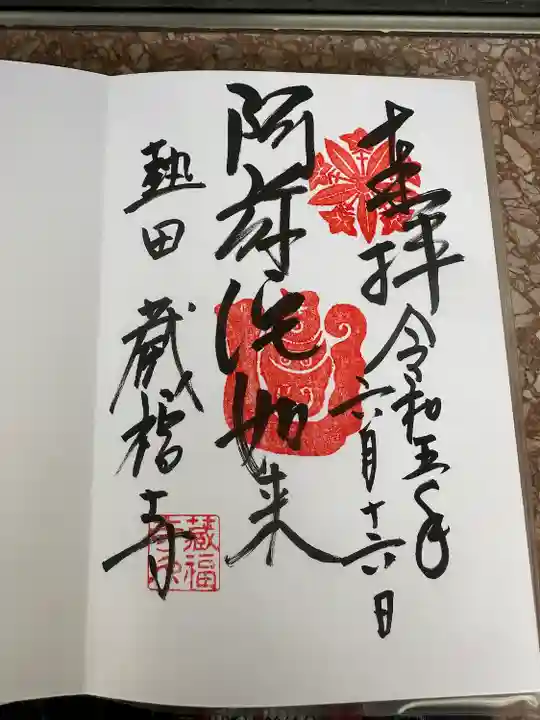 来拝
令和五年
六月十六日
阿弥陀如来
熱田
蔵福寺
蔵福